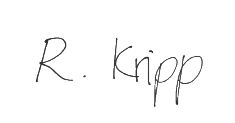 R. Kripp